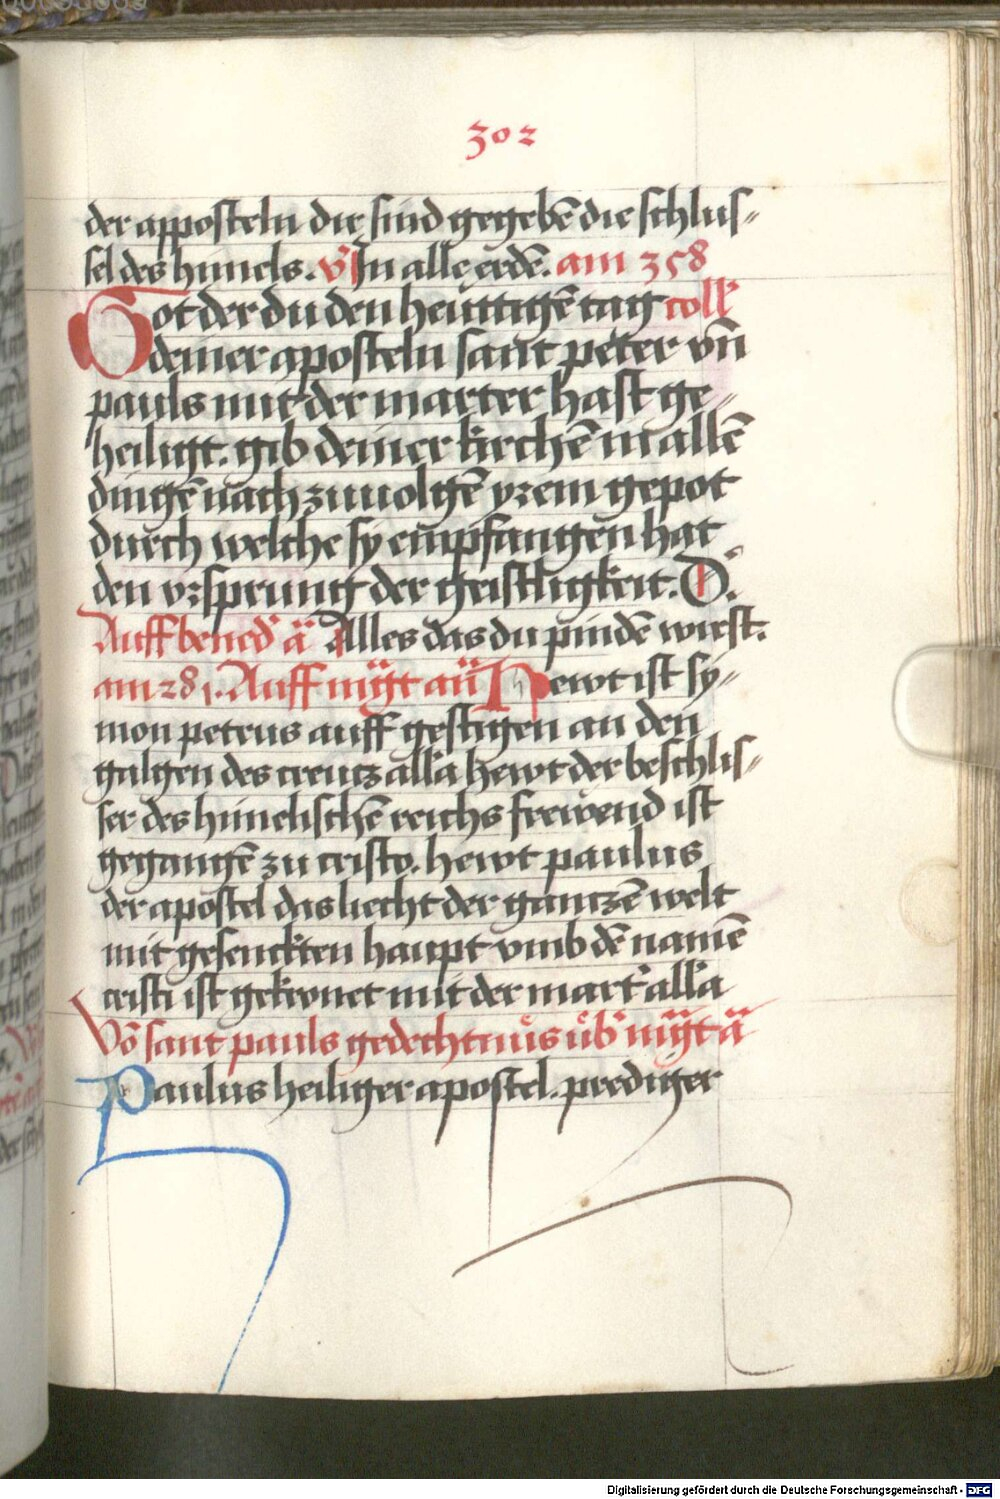 302
der apposteln dir sind gegebē die schlus⸗
sel des himels. v̄ In alle erdē. am 358
Got der du den heüttigē tag coll̄
deiner aposteln sant peter vn̄
pauls mit der marter hast ge⸗
heiligt. gib deiner kirchē in allē
dingē nach zuuolgē yrem gepot
durch welche sy empfangen hat
den vrsprung der geistligkeit. D.
Auff bened̄ ā Alles das du pindē wirst.
am 281. Auff mg̈t an̄ Hewt ist sy⸗
mon petrus auff gestigen an den
galgen des creutz all̄a hewt der beschlis⸗
ser des himelischē reichs frewend ist
gegangē zu cristo. hewt paulus
der apostel das liecht der gantzē welt
mit gesenckten haupt vmb dē namē
cristi ist gekronet mit der mart̄ all̄a
Vō sant pauls gedechtnus üb̄ mg̈t ā
Paulus heiliger apostel. prediger
Digitalisierung gefördert durch die Deutsche Forschungsgemeinschaft - DFG